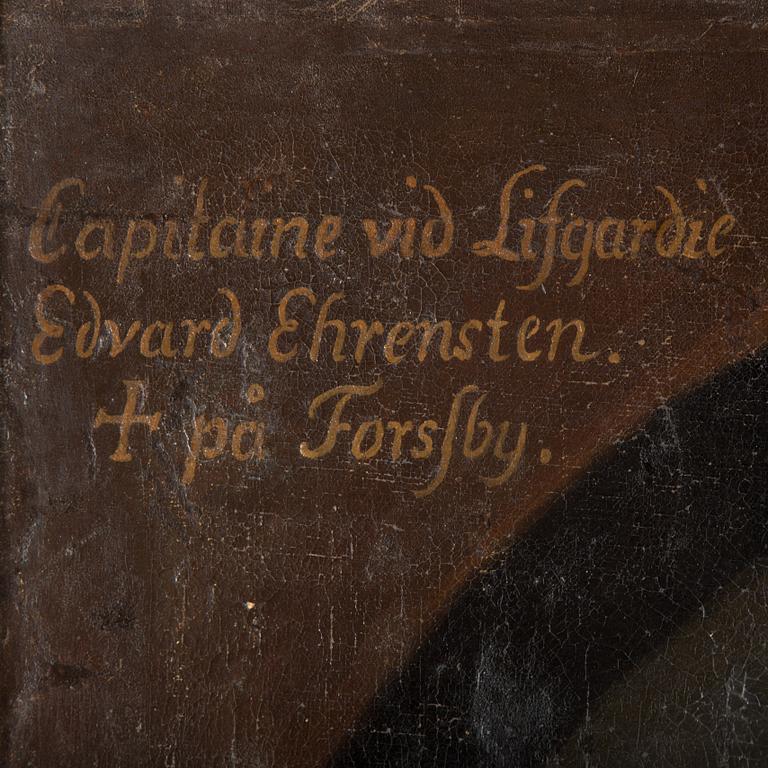 Capitaine vid Lifgardie
Edvard Ehrensten.
+ på Forsſby.